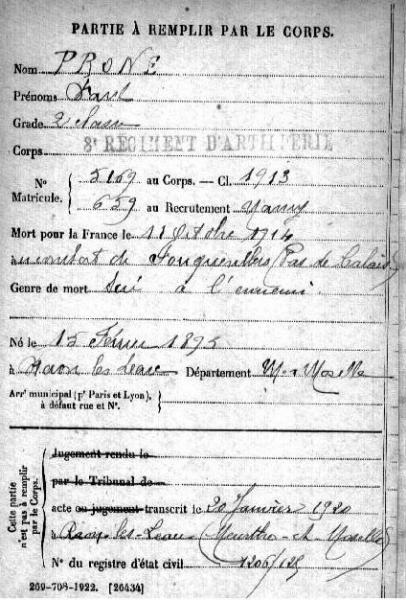 PARTIE À REMPLIR PAR LE CORPS.
Nom PRONÉ
Prénoms Paul
Grade 2e classe
Corps 8e REGIMENT D'ARTILLERIE
N° Matricule. { 5169 au Corps. — Cl. 1913
659 au Recrutement Nancy
Mort pour la France le 11 Octobre 1914
à au combat de Fouquevillers (Pas de Calais)
Genre de mort Tué à l'ennemi.
Né le 15 Février 1895
à Raon les Leau Département M. Moselle
Arrt municipal (pr Paris et Lyon), à défaut rue et N°.
Cette partie n'est pas à remplir par le Corps.
Jugement rendu le
par le Tribunal de
acte ou jugement transcrit le 20 Janvier 1920
à Raon-les-Leau (Meurthe et Moselle)
N° du registre d'état civil 1206/125
269-708-1922. [26434]